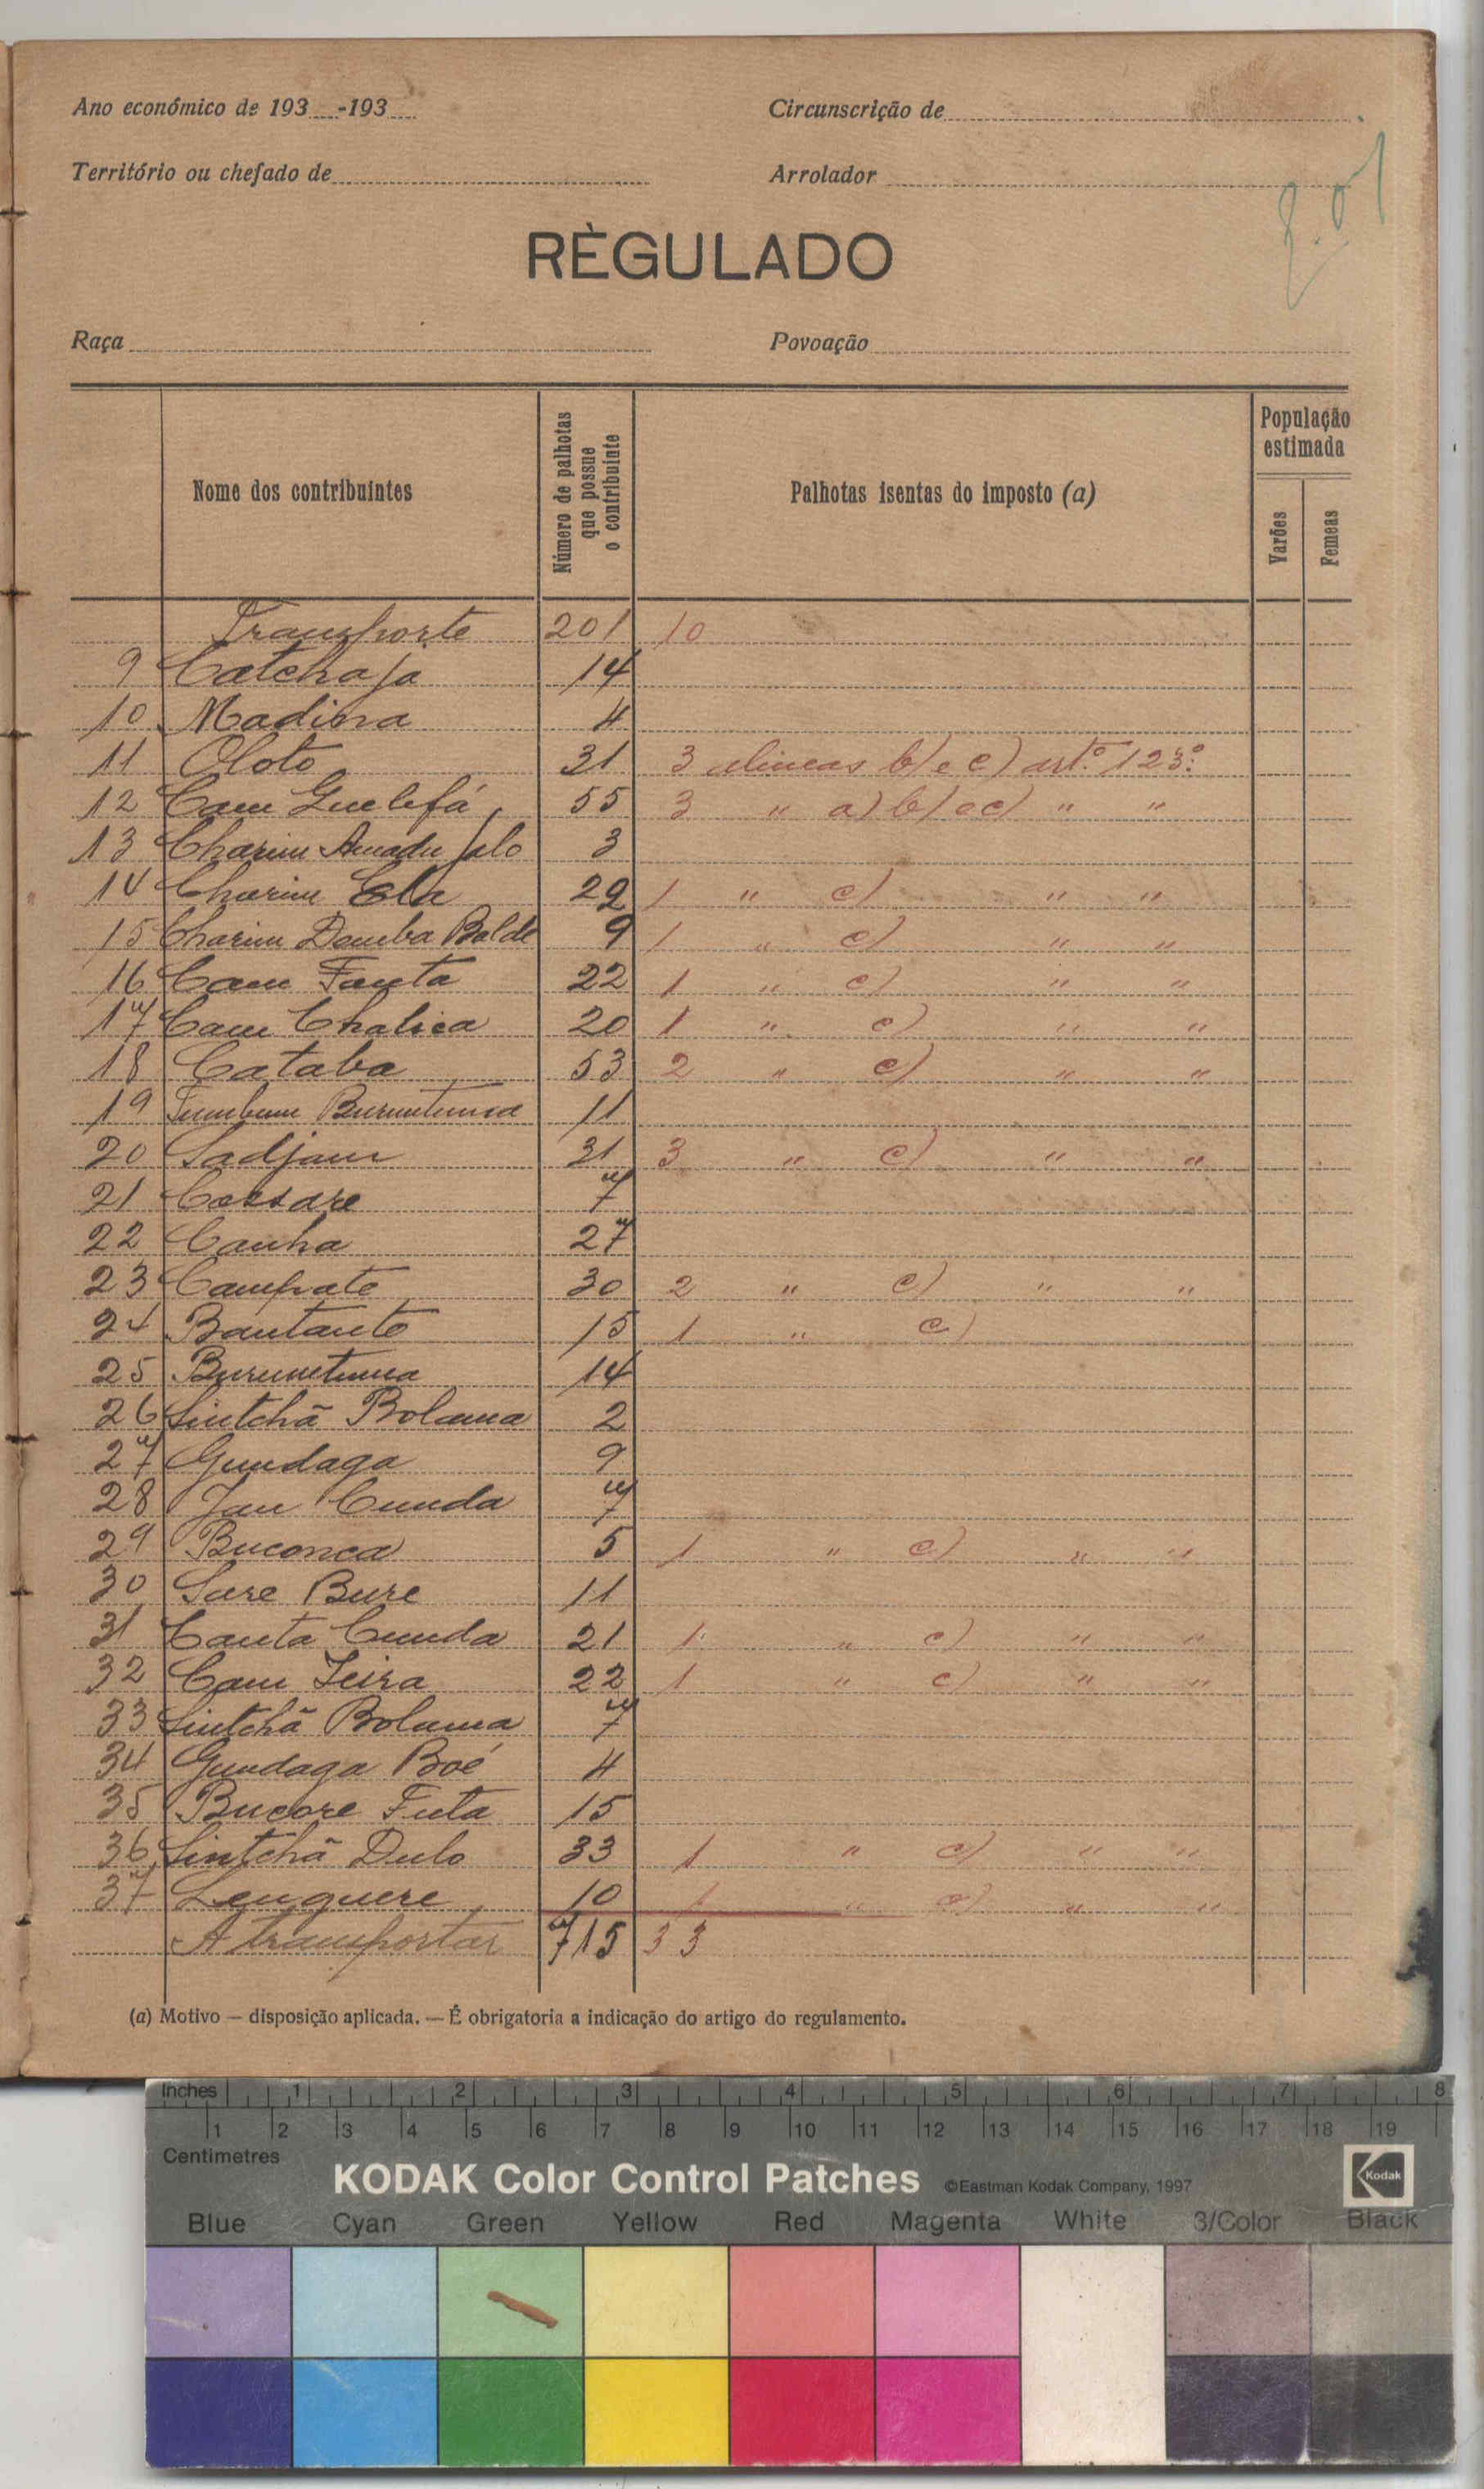 Ano económico de 193 -193
Circunscrição de
Território ou chefado de
Arrolador
RÈGULADO
Raça
Povoação
Nome dos contribuintes
Número de palhotas que possue o contribuinte
Palhotas isentas do imposto (a)
População estimada
Varões
Femeas
Transporte 201 10
9 Catchaja 14
10 Madina 4
11 Oloto 31 3 alineas b) e c) artº. 123º.
12 Cam Guelefá 55 3 " a) b) e c) " "
13 Charim Amadu Jalo 3
14 Charim Ela 22 1 " c) " "
15 Charim Demba Balde 9 1 " c) " "
16 Cam Fanta 22 1 " c) " "
17 Cam Chalica 20 1 " c) " "
18 Cataba 53 2 " c) " "
19 Buruntuma 11
20 Sadjam 31 3 " c) " "
21 Cossare 7
22 Canha 27
23 Campate 30 2 " c) " "
24 Bantanto 15 1 " c)
25 Buruntuma 14
26 Sintchã Bolama 2
27 Gundaga 9
28 Jau Cunda 7
29 Buconca 5 1 " c) " "
30 Sare Bure 11
31 Canta Cunda 21 1 " c) " "
32 Cam Jeira 22 1 " c) " "
33 Sintchã Bolama 7
34 Gundaga Boé 4
35 Bucore Futa 15
36 Sintchã Dulo 33 1 " c) " "
37 Lenguere 10 1 " c) " "
A transportar 715 33
(a) Motivo — disposição aplicada. — É obrigatoria a indicação do artigo do regulamento.
Inches 1 2 3 4 5 6 7 8
1 2 3 4 5 6 7 8 9 10 11 12 13 14 15 16 17 18 19
Centimetres
KODAK Color Control Patches ©Eastman Kodak Company, 1997 Kodak
Blue Cyan Green Yellow Red Magenta White 3/Color Black